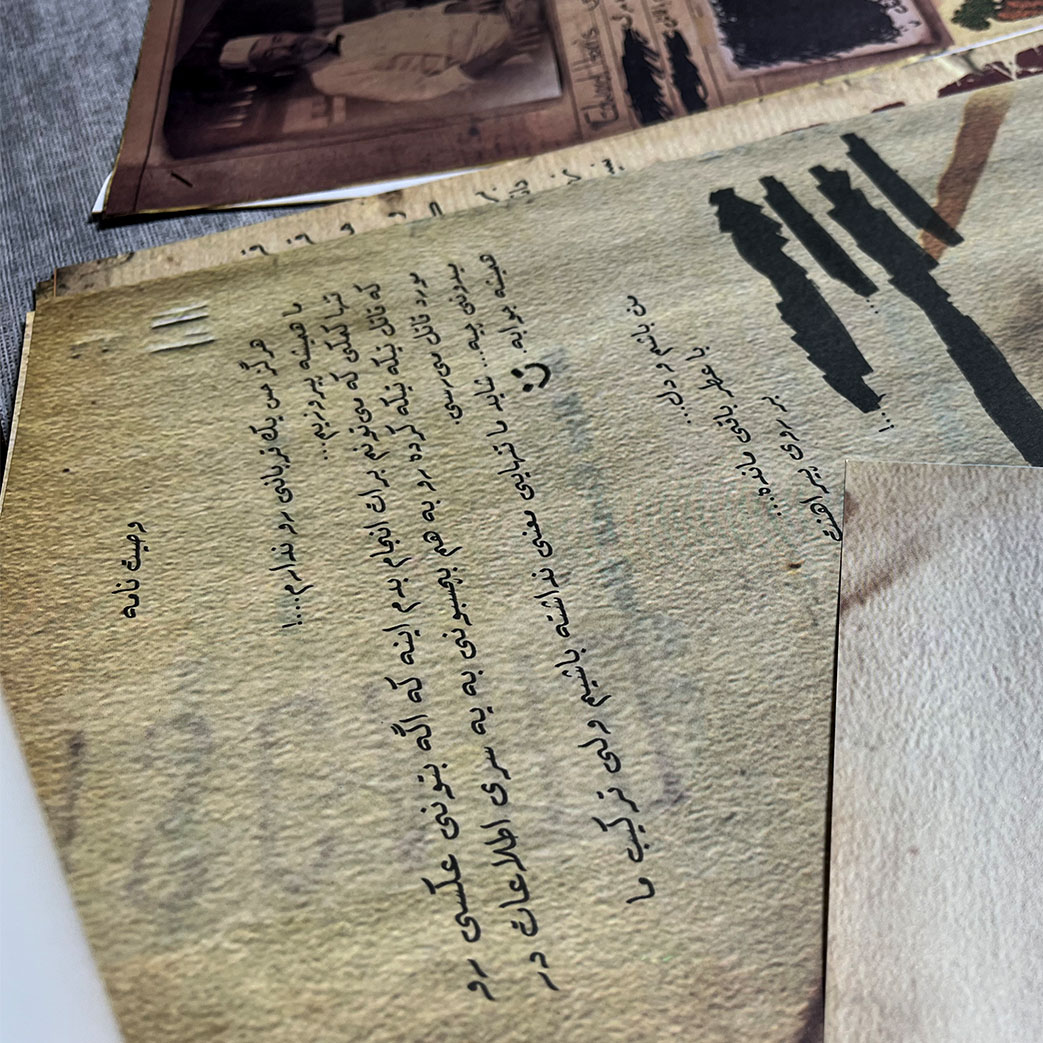 Edward Harris
وصیت نامه
هرگز حس یک قربانی رو ندارم...!
ما همیشه پیروزیم...
تنها کمکی که می‌تونم برات انجام بدم اینه که اگه بتونی عکسی رو
که قاتل تیکه تیکه کرده رو به هم بچسبونی به یه سری اطلاعات در
مورد قاتل می‌رسی.
بدونی چیه... شاید ما تنهایی معنی نداشته باشیم ولی ترکیب ما
همیشه جوابه.
من باشم و دل...
با عطر باقی مانده...
بر روی پیراهنت
...!